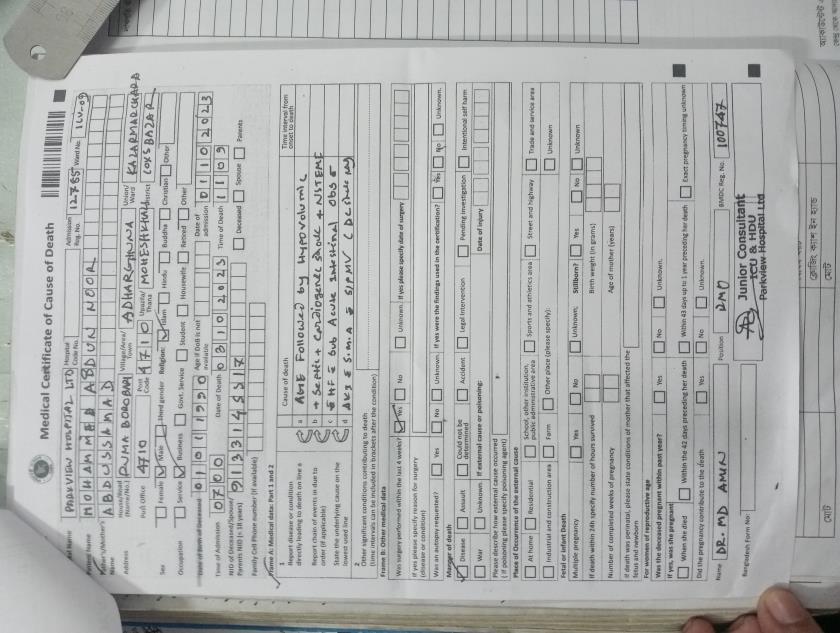 Medical Certificate of Cause of Death
Hospital Name PARKVIEW HOSPITAL LTD Hospital Code No. Admission Reg. No. 12785 Ward No. ICU-09
Name MOHAMMED ABDUN NOOR
Father's/Mother's Name ABDUSSAMAD
Address House/Road (Name/No.) Village/Area/Town ADHARGHUNA Union/Ward KALARMARCHARA
Post Office 4710 Post Code 4710 Upazila/Thana MOHESHKHALI District COXS BAZAR
Sex Female Male Third gender Religion: Islam Hindu Buddha Christian Other
Occupation Service Business Govt. Service Student Housewife Retired Other
Date of Birth of Deceased 01011990 Age if DoB is not available Date of admission 01102023
Time of Admission 0700 Date of Death 03102023 Time of Death 1109
NID of Deceased/Spouse/Parents NID (< 18 years) 9133145517 Deceased Spouse Parents
Family Cell Phone number (if available)
Frame A: Medical data: Part 1 and 2
1 Cause of death Time interval from onset to death
Report disease or condition directly leading to death on line a
a AGE Followed by Hypovolumic
Report chain of events in due to order (if applicable)
b + Septic + Cardiogenic Shock + NSTEMI
State the underlying cause on the lowest used line
c Sub Acute Intestinal Obs
d
2 Other significant conditions contributing to death (time intervals can be included in brackets after the condition)
Frame B: Other medical data
Was surgery performed within the last 4 weeks? Yes No Unknown. If yes please specify date of surgery
If yes please specify reason for surgery (disease or condition)
Was an autopsy requested? Yes No Unknown. If yes were the findings used in the certification? Yes No Unknown.
Manner of death
Disease Assault Could not be determined Accident Legal Intervention Pending Investigation Intentional self harm
War Unknown. If external cause or poisoning: Date of injury
Please describe how external cause occurred ( If poisoning please specify poisoning agent)
Place of Occurrence of the external cause
At home Residential School, other institution, public administrative area Sports and athletics area Street and highway Trade and service area
Industrial and construction area Farm Other place (please specify): Unknown
Fetal or infant Death
Multiple pregnancy Yes No Unknown. Stillborn? Yes No Unknown
If death within 24h specify number of hours survived Birth weight (in grams)
Number of completed weeks of pregnancy Age of mother (years)
If death was perinatal, please state conditions of mother that affected the fetus and newborn
For women of reproductive age
Was the deceased pregnant within past year? Yes No Unknown.
If yes, was she pregnant
When she died Within the 42 days preceding her death Within 43 days up to 1 year preceding her death Exact pregnancy timing unknown
Did the pregnancy contribute to the death Yes No Unknown.
Name DR. MD AMIN Position DMO BMDC Reg. No. 100747
Bangladesh Form No:
Junior Consultant
ICU & HDU
Parkview Hospital Ltd
মোট
মোট